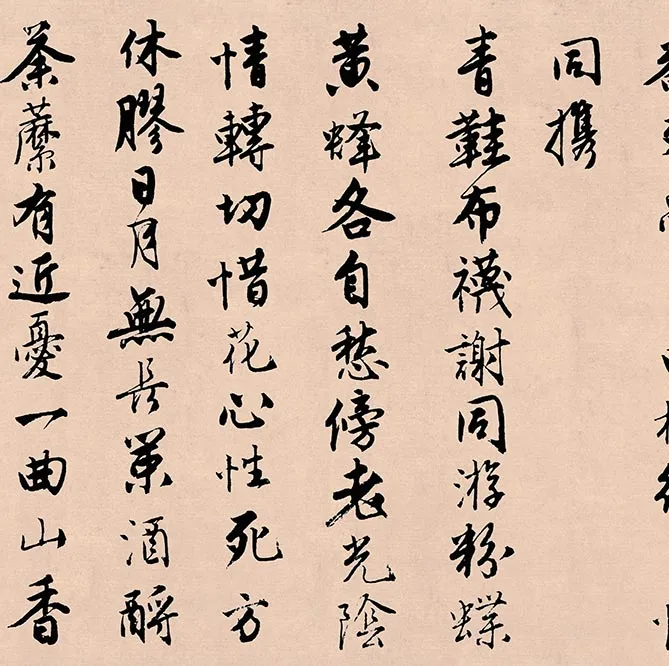 同攜
青鞋布襪謝同游粉蝶
黃蜂各自愁傍老光陰
情轉切惜花心性死方
休膠日月無長策酒酹
荼蘼有近憂一曲山香